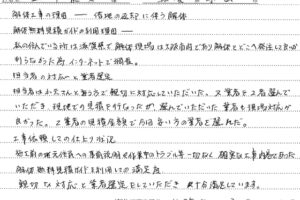 解体工事の理由 ― 借地の返却に伴う解体
解体無料見積ガイドの利用理由 ―
私の住んでいる所は滋賀県で解体現場は大阪府内であり解体をどこへ発注して良いか
判らなかった為インターネットで検索。
担当者の対応と業者選定
担当者は さんと言う方で親切に対応していただいた。又業者を2名選んで
いただき、現地での見積を行なったが、選んでいただいた業者も現場対応が
良かった。2業者の見積金額で「より安い方の業者を選んだ。
工事依頼しての仕上り状況
施工前の近隣住民への事前説明や作業中のトラブル等一切なく確実な工事内容であった
解体無料見積ガイドを利用しての満足度
親切な対応と業者選定をしていただき 大変満足しています。